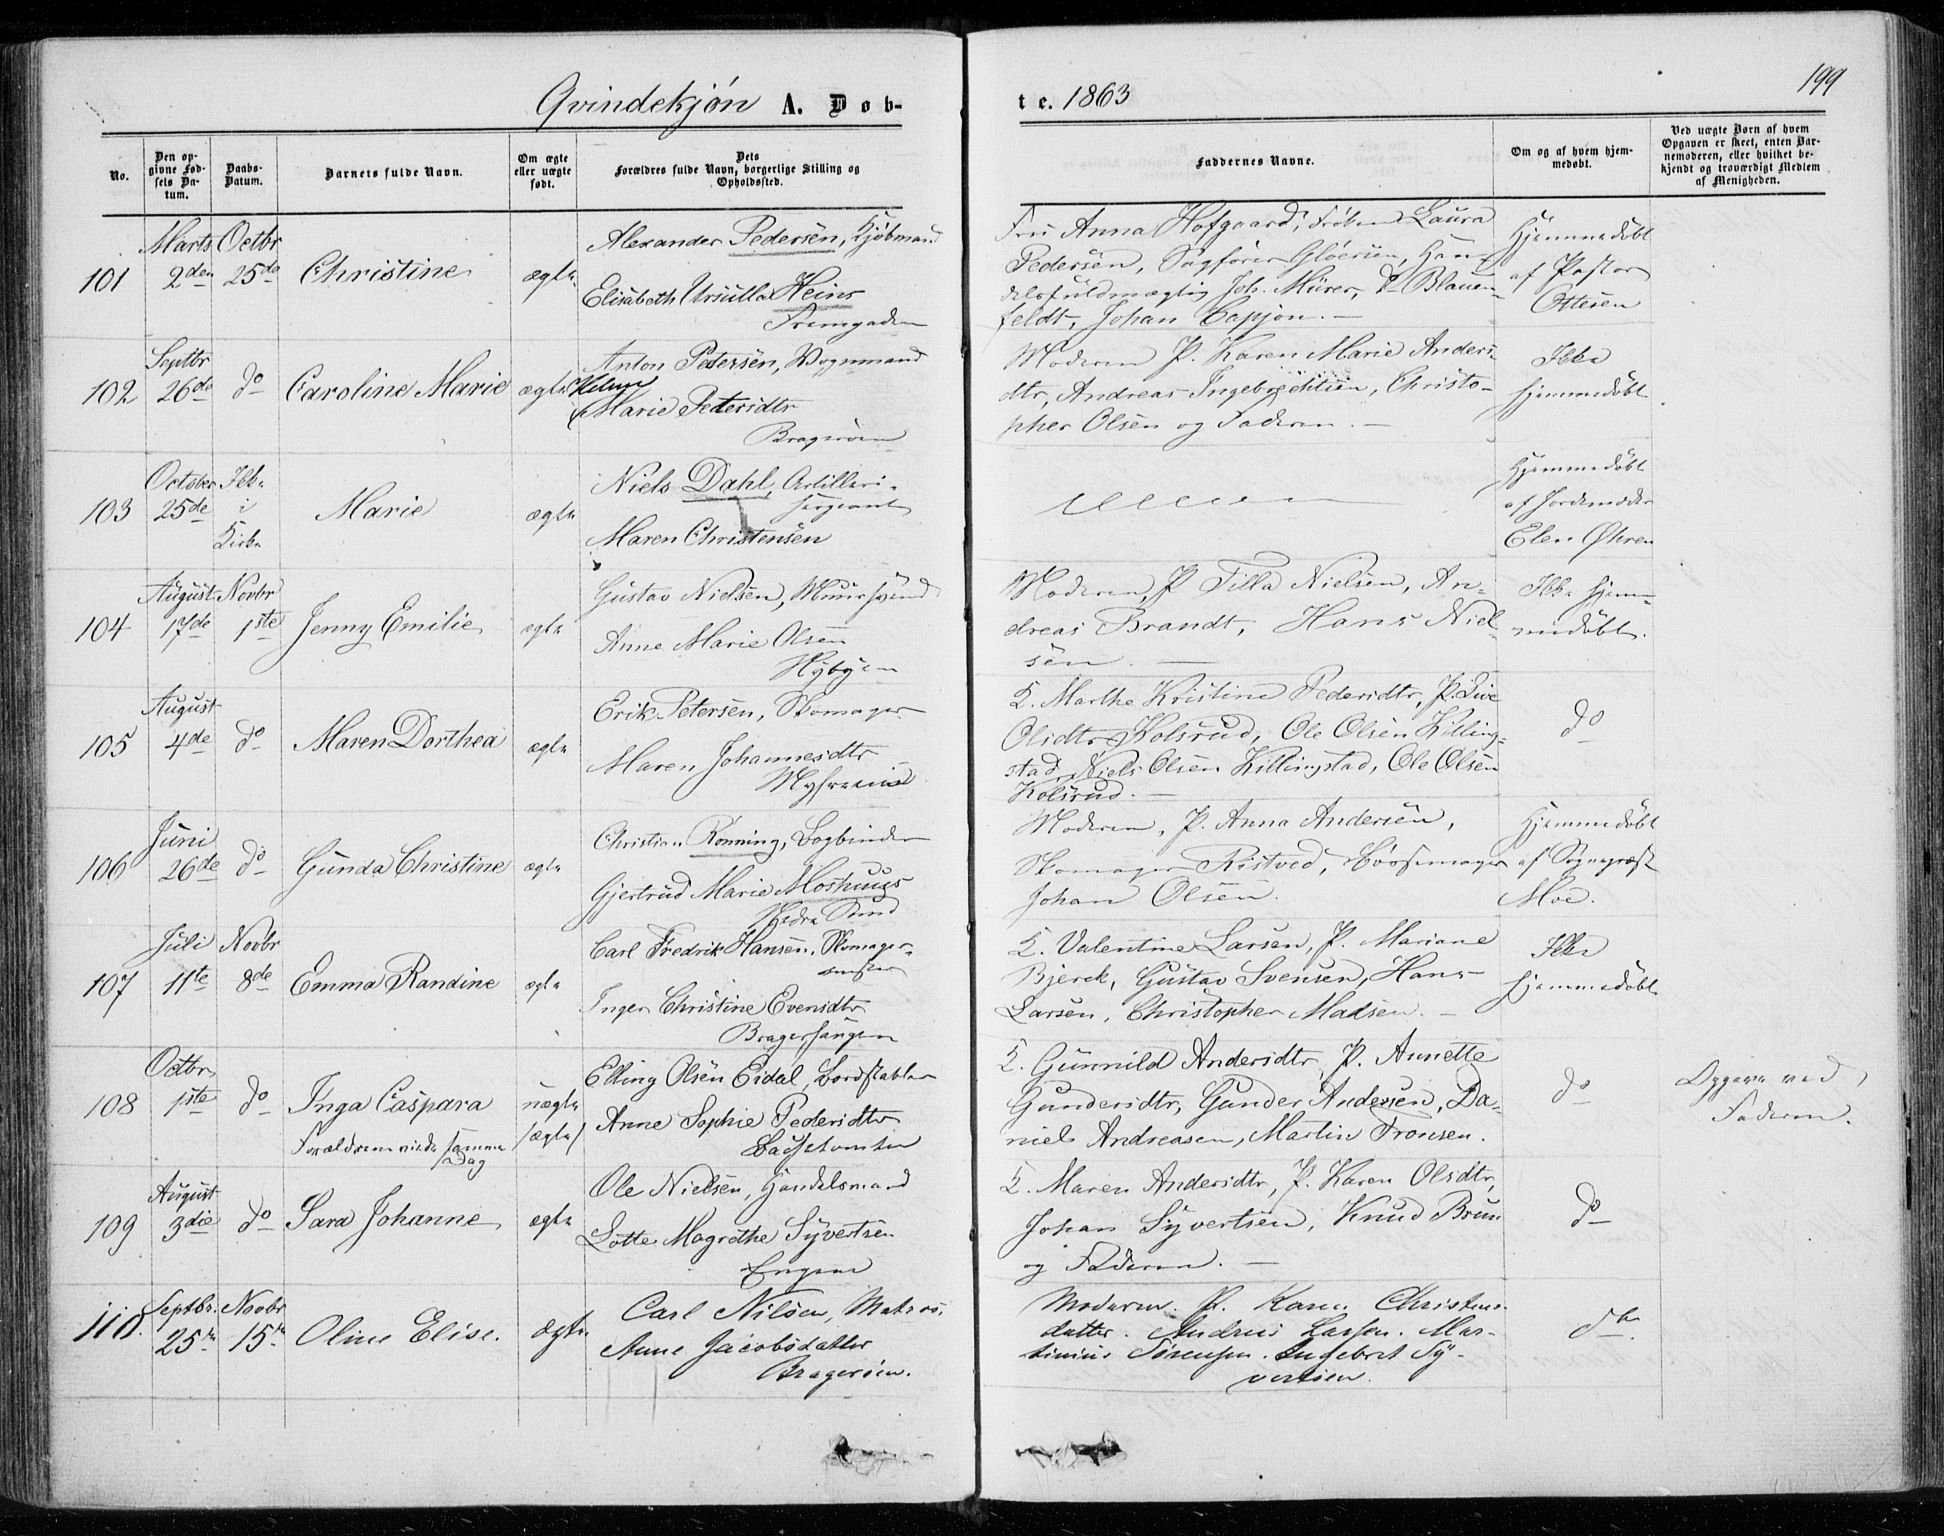 Qvindekjøn A. Døb-
te. 1863
199
No.
Den opgivne Fødsels Datum.
Daabs-Datum.
Barnets fulde Navn.
Om ægte eller uægte født.
Dets Forældres fulde Navn, borgerlige Stilling og Opholdssted.
Faddernes Navne.
Om og af hvem hjemmedøbt.
Ved uægte Børn af hvem Opgaven er skeet, enten Barnemoderen, eller hvilket bekjendt og troværdigt Medlem af Menigheden.
101
Marts 2den
Octbr 25de
Christine
ægte
Alexander Pedersen, Kjøbmand
Elisabeth Ursulla Heins
Fru Anna Hofgaard, Frøken Laura
Pedersen, Sagfører Gløersen, Han-
delsfuldmægtig Joh. Mürer, do Blauen-
feldt, Johan Capjon. —
Hjemmedøbt
af Pastor
Ottesen
102
Septbr 26de
do
Caroline Marie
ægte
Anton Pedersen, Vognmand
Marie Petersdtr
Bragerøen
Moderen P. Karen Marie Anders-
dtr, Andreas Ingebrethsen, Christo-
pher Olsen og Faderen. —
Ikke
hjemmedøbt
103
October 25de
Ikke
i
Kirke
Marie
ægte
Niels Dahl, Artilleri-
sergeant
Maren Christensen
Hjemmedøbt
af Jordemoder
Elen Øhren
104
August 17de
Novbr 1ste
Jenny Emilie
ægte
Gustav Nielsen, Muursvend
Anne Marie Olsen
Nybyen
Moderen, P. Tilla Nielsen, An-
dreas Brandt, Hans Niel-
sen. —
Ikke hjem-
medøbt.
105
August 4de
do
Maren Dorthea
ægte
Erik Petersen, Skomager
Maren Johannesdtr
K. Marthe Kristine Pedersdtr, P. Live
Olsdtr Kolsrud, Ole Olsen Killing-
stad, Niels Olsen Killingstad, Ole Olsen
Kolsrud. —
do
106
Juni 26de
do
Gunda Christine
ægte
Christian Rønning, Bogbinder
Gjertrud Marie Moshuus
Nedre Sund
Moderen, P. Anna Andersen,
Skomager Ristved, Børsemager
Johan Olsen.
Hjemmedøbt
af Sognepræst
Moe.
107
Juli 11te
Novbr 8de
Emma Randine
ægte
Carl Fredrik Hansen, Skomager-
mester
Inger Christine Evensdtr
Bragerhaugen
K. Valentine Larsen, P. Mariane
Bjerck, Gustav Svensen, Hans
Larsen, Christopher Madsen. —
Ikke
hjemmedøbt
108
Octbr 1ste
do
Inga Caspara
Forældrene viede samme
Dag
uægte
/ægte/
Elling Olsen Eidal, Bordstabler
Anne Sophie Pedersdtr
K. Gunnild Andersdtr, P. Annette
Gundersdtr, Gunder Andersen, Da-
niel Andreasen, Martin Tronsen.
do
Opgave ved
Faderen.
109
August 3die
do
Sara Johanne
ægte
Ole Nielsen, Handelsmand
Lotte Magrethe Syvertsen
Engene
K. Maren Andersdtr, P. Karen Olsdtr,
Johan Syvertsen, Knud Brun
og Faderen. —
do
110.
Septbr. 25de
Novbr 15de
Oline Elise.
ægte
Carl Nilsen, Matros,
Anne Jacobsdatter
Bragerøen.
Moderen. P. Karen Christens-
datter. Andreas Larsen. Mar-
tinius Sørensen. Engebret Sy-
vertsen.
do.